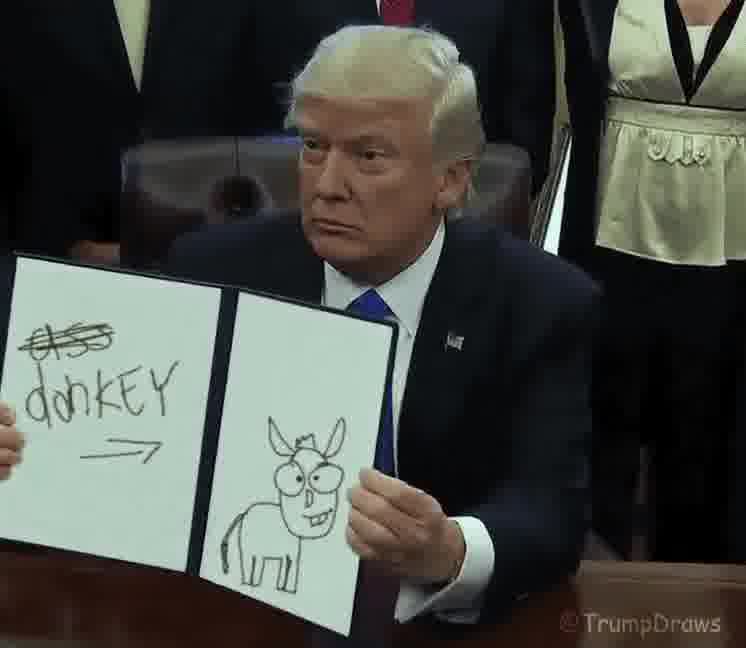 ass
donKEY
@TrumpDraws